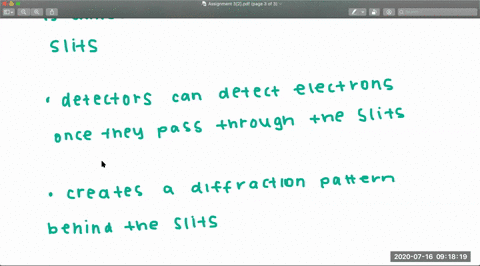 Assignment 3[2].pdf (page 3 of 3)
Search
slits
• detectors can detect electrons
once they pass through the slits
• creates a diffraction pattern
behind the slits
2020-07-16 09:18:19